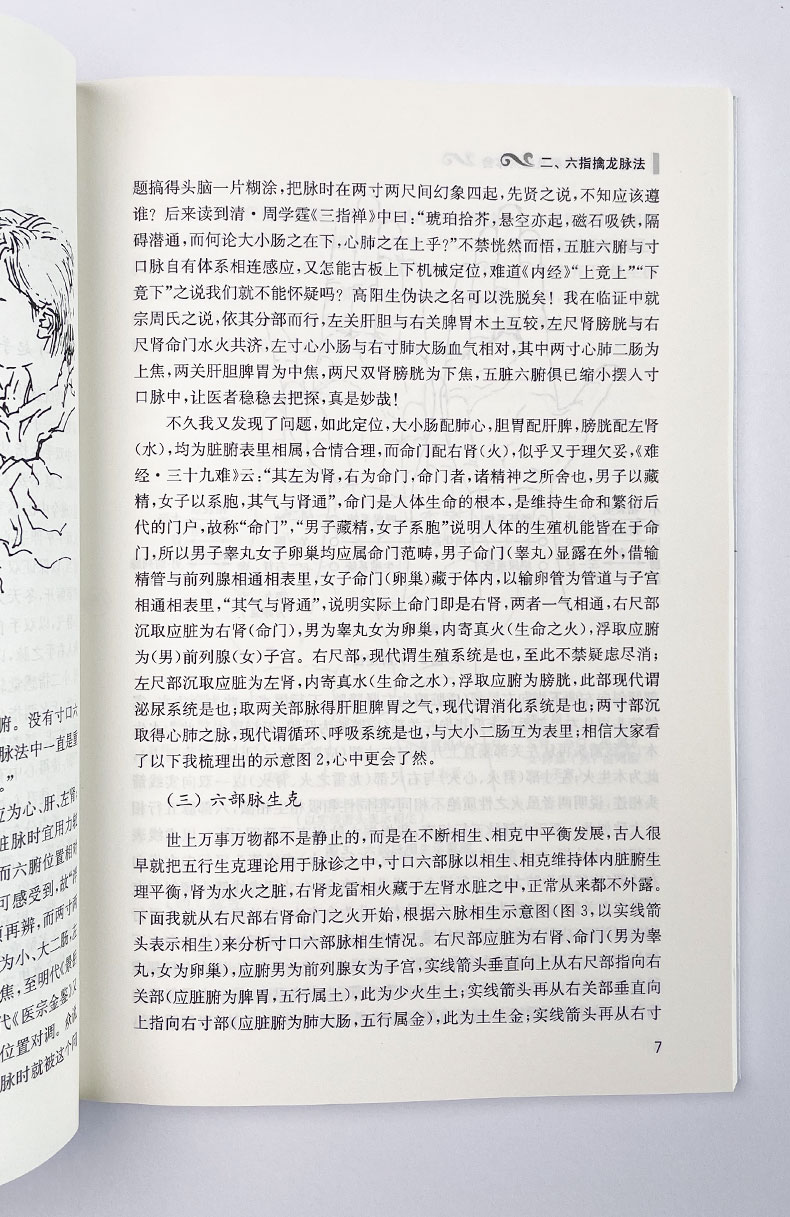 腑。没有寸口六
脉法中一直是重
。”
应为心、肝、左肾,
脏脉时宜用力轻
而六腑位置相对
可感受到,故“浮
须再辨,而两寸两
为小、大二肠,左
焦,至明代《景岳
代《医宗金鉴》又
位置对调。众说
脉时就被这个问
二、六指擒龙脉法
题搞得头脑一片糊涂,把脉时在两寸两尺间幻象四起,先贤之说,不知应该遵
谁?后来读到清·周学霆《三指禅》中曰:“琥珀拾芥,悬空亦起,磁石吸铁,隔
碍潜通,而何论大小肠之在下,心肺之在上乎?”不禁恍然而悟,五脏六腑与寸
口脉自有体系相连感应,又怎能古板上下机械定位,难道《内经》“上竟上”“下
竟下”之说我们就不能怀疑吗?高阳生伪诀之名可以洗脱矣!我在临证中就
宗周氏之说,依其分部而行,左关肝胆与右关脾胃木土互较,左尺肾膀胱与右
尺肾命门水火共济,左寸心小肠与右寸肺大肠血气相对,其中两寸心肺二肠为
上焦,两关肝胆脾胃为中焦,两尺双肾膀胱为下焦,五脏六腑俱已缩小摆入寸
口脉中,让医者稳稳去把探,真是妙哉!
不久我又发现了问题,如此定位,大小肠配肺心,胆胃配肝脾,膀胱配左肾
(水),均为脏腑表里相属,合情合理,而命门配右肾(火),似乎又于理欠妥,《难
经·三十九难》云:“其左为肾,右为命门,命门者,诸精神之所舍也,男子以藏
精,女子以系胞,其气与肾通”,命门是人体生命的根本,是维持生命和繁衍后
代的门户,故称“命门”,“男子藏精,女子系胞”说明人体的生殖机能皆在于命
门,所以男子睾丸女子卵巢均应属命门范畴,男子命门(睾丸)显露在外,借输
精管与前列腺相通相表里,女子命门(卵巢)藏于体内,以输卵管为管道与子宫
相通相表里,“其气与肾通”,说明实际上命门即是右肾,两者一气相通,右尺部
沉取应脏为右肾(命门),男为睾丸女为卵巢,内寄真火(生命之火),浮取应腑
为(男)前列腺(女)子宫。右尺部,现代谓生殖系统是也,至此不禁疑虑尽消;
左尺部沉取应脏为左肾,内寄真水(生命之水),浮取应腑为膀胱,此部现代谓
泌尿系统是也;取两关部脉得肝胆脾胃之气,现代谓消化系统是也;两寸部沉
取得心肺之脉,现代谓循环、呼吸系统是也,与大小二肠互为表里;相信大家看
了以下我梳理出的示意图2,心中更会了然。
(三)六部脉生克
世上万事万物都不是静止的,而是在不断相生、相克中平衡发展,古人很
早就把五行生克理论用于脉诊之中,寸口六部脉以相生、相克维持体内脏腑生
理平衡,肾为水火之脏,右肾龙雷相火藏于左肾水脏之中,正常从来都不外露。
下面我就从右尺部右肾命门之火开始,根据六脉相生示意图(图3,以实线箭
头表示相生)来分析寸口六部脉相生情况。右尺部应脏为右肾、命门(男为睾
丸,女为卵巢),应腑男为前列腺女为子宫,实线箭头垂直向上从右尺部指向右
关部(应脏腑为脾胃,五行属土),此为少火生土;实线箭头再从右关部垂直向
上指向右寸部(应脏腑为肺大肠,五行属金),此为土生金;实线箭头再从右寸
7